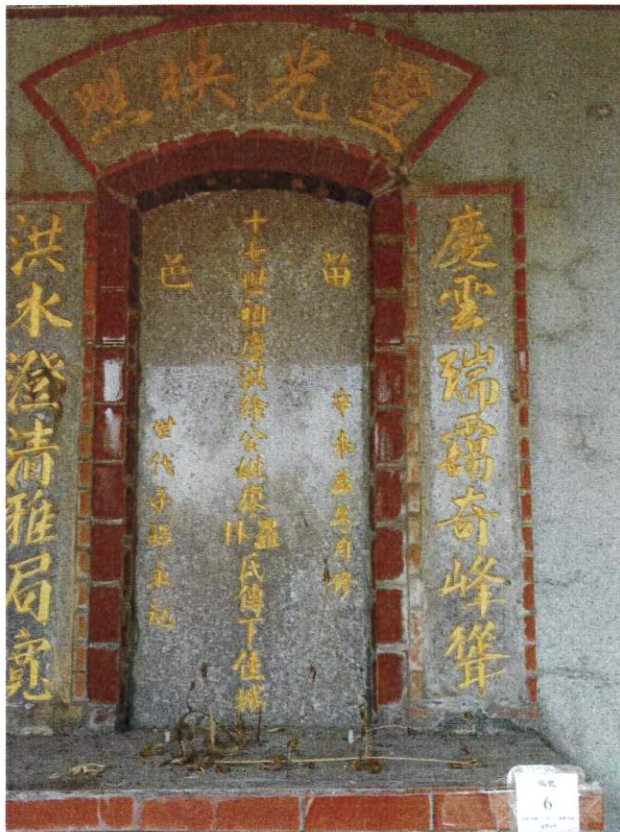 靈光映照
慶雲瑞靄奇峰聳
苗
辛未孟冬月修
十七世祖慶洪徐公妣廖羅林氏傳下佳城
邑
世代子孫永祀
洪水澄清雅局寬
編號
6